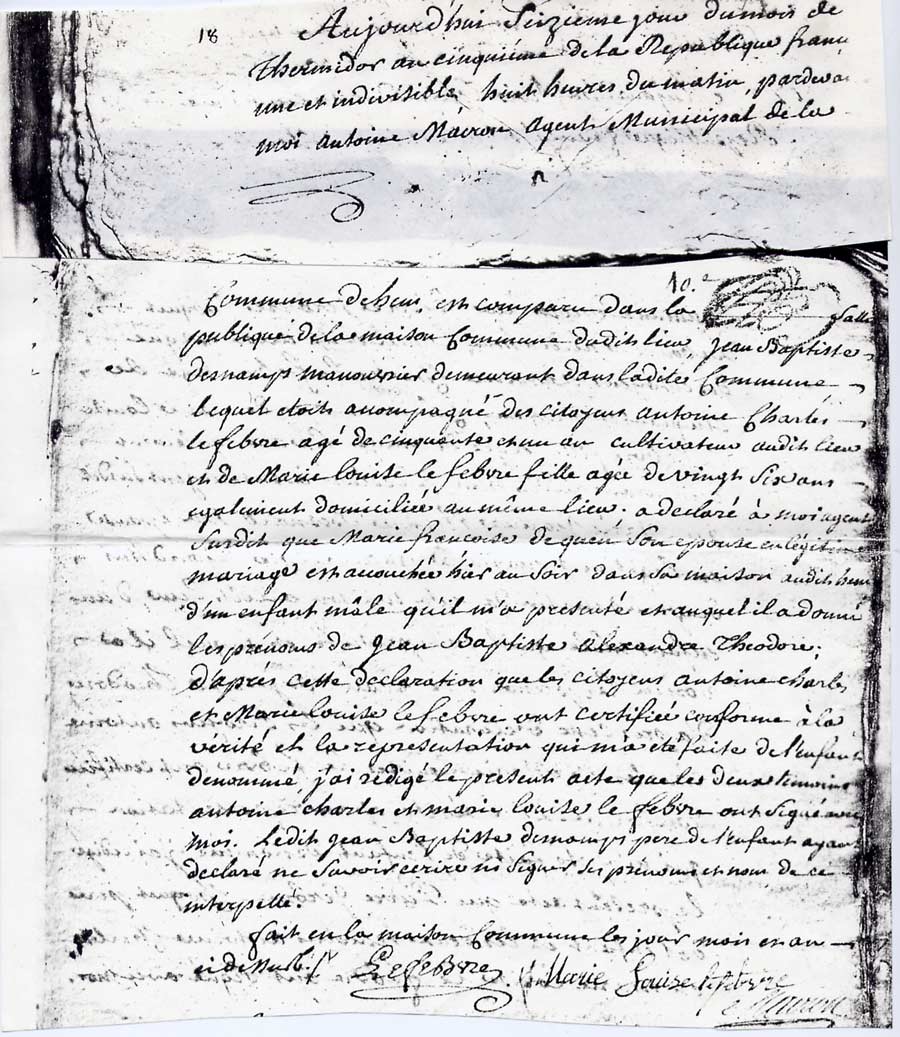 18 Aujourd'hui Seizieme jour du mois de
Thermidor an cinquieme de la Republique franc
une et indivisible, huit heures du matin, pardeva
moi antoine Macron agent Municipal de la
10.e
Commune de hem, est comparu dans la salle
publique de la maison Commune dudit lieu, Jean Baptiste
demeurant dans ladite Commune
lequel etoit acompagné des citoyens antoine Charles
le febvre agé de cinquante et un an cultivateur audit lieu
et de Marie louise le febvre fille agée de vingt six ans
egalement domiciliée au même lieu. a declaré à moi agent
Susdit que Marie françoise de quen Son epouse en légitime
mariage est acouchée hier au Soir dans Sa maison audit hem
d'un enfant mâle qu'il m'a presenté et auquel il a donné
les prénoms de Jean Baptiste alexandre Theodore,
d'après cette declaration que les citoyens antoine charles
et Marie louise le febvre ont certifiée conforme à la
vérité et la representation qui m'a eté faite de l'enfant
denommé, j'ai rédigé le present acte que les deux temoins
antoine charles et marie louise le febvre ont Signé avec
moi. Ledit Jean Baptiste pere de l'enfant ayant
declaré ne Savoir ecrire ni Signer Ses prenoms et nom de ce
interpellé.
fait en la maison Commune les jour mois et an
ci dessus
Lefebvre Marie Louise lefebvre
Macron